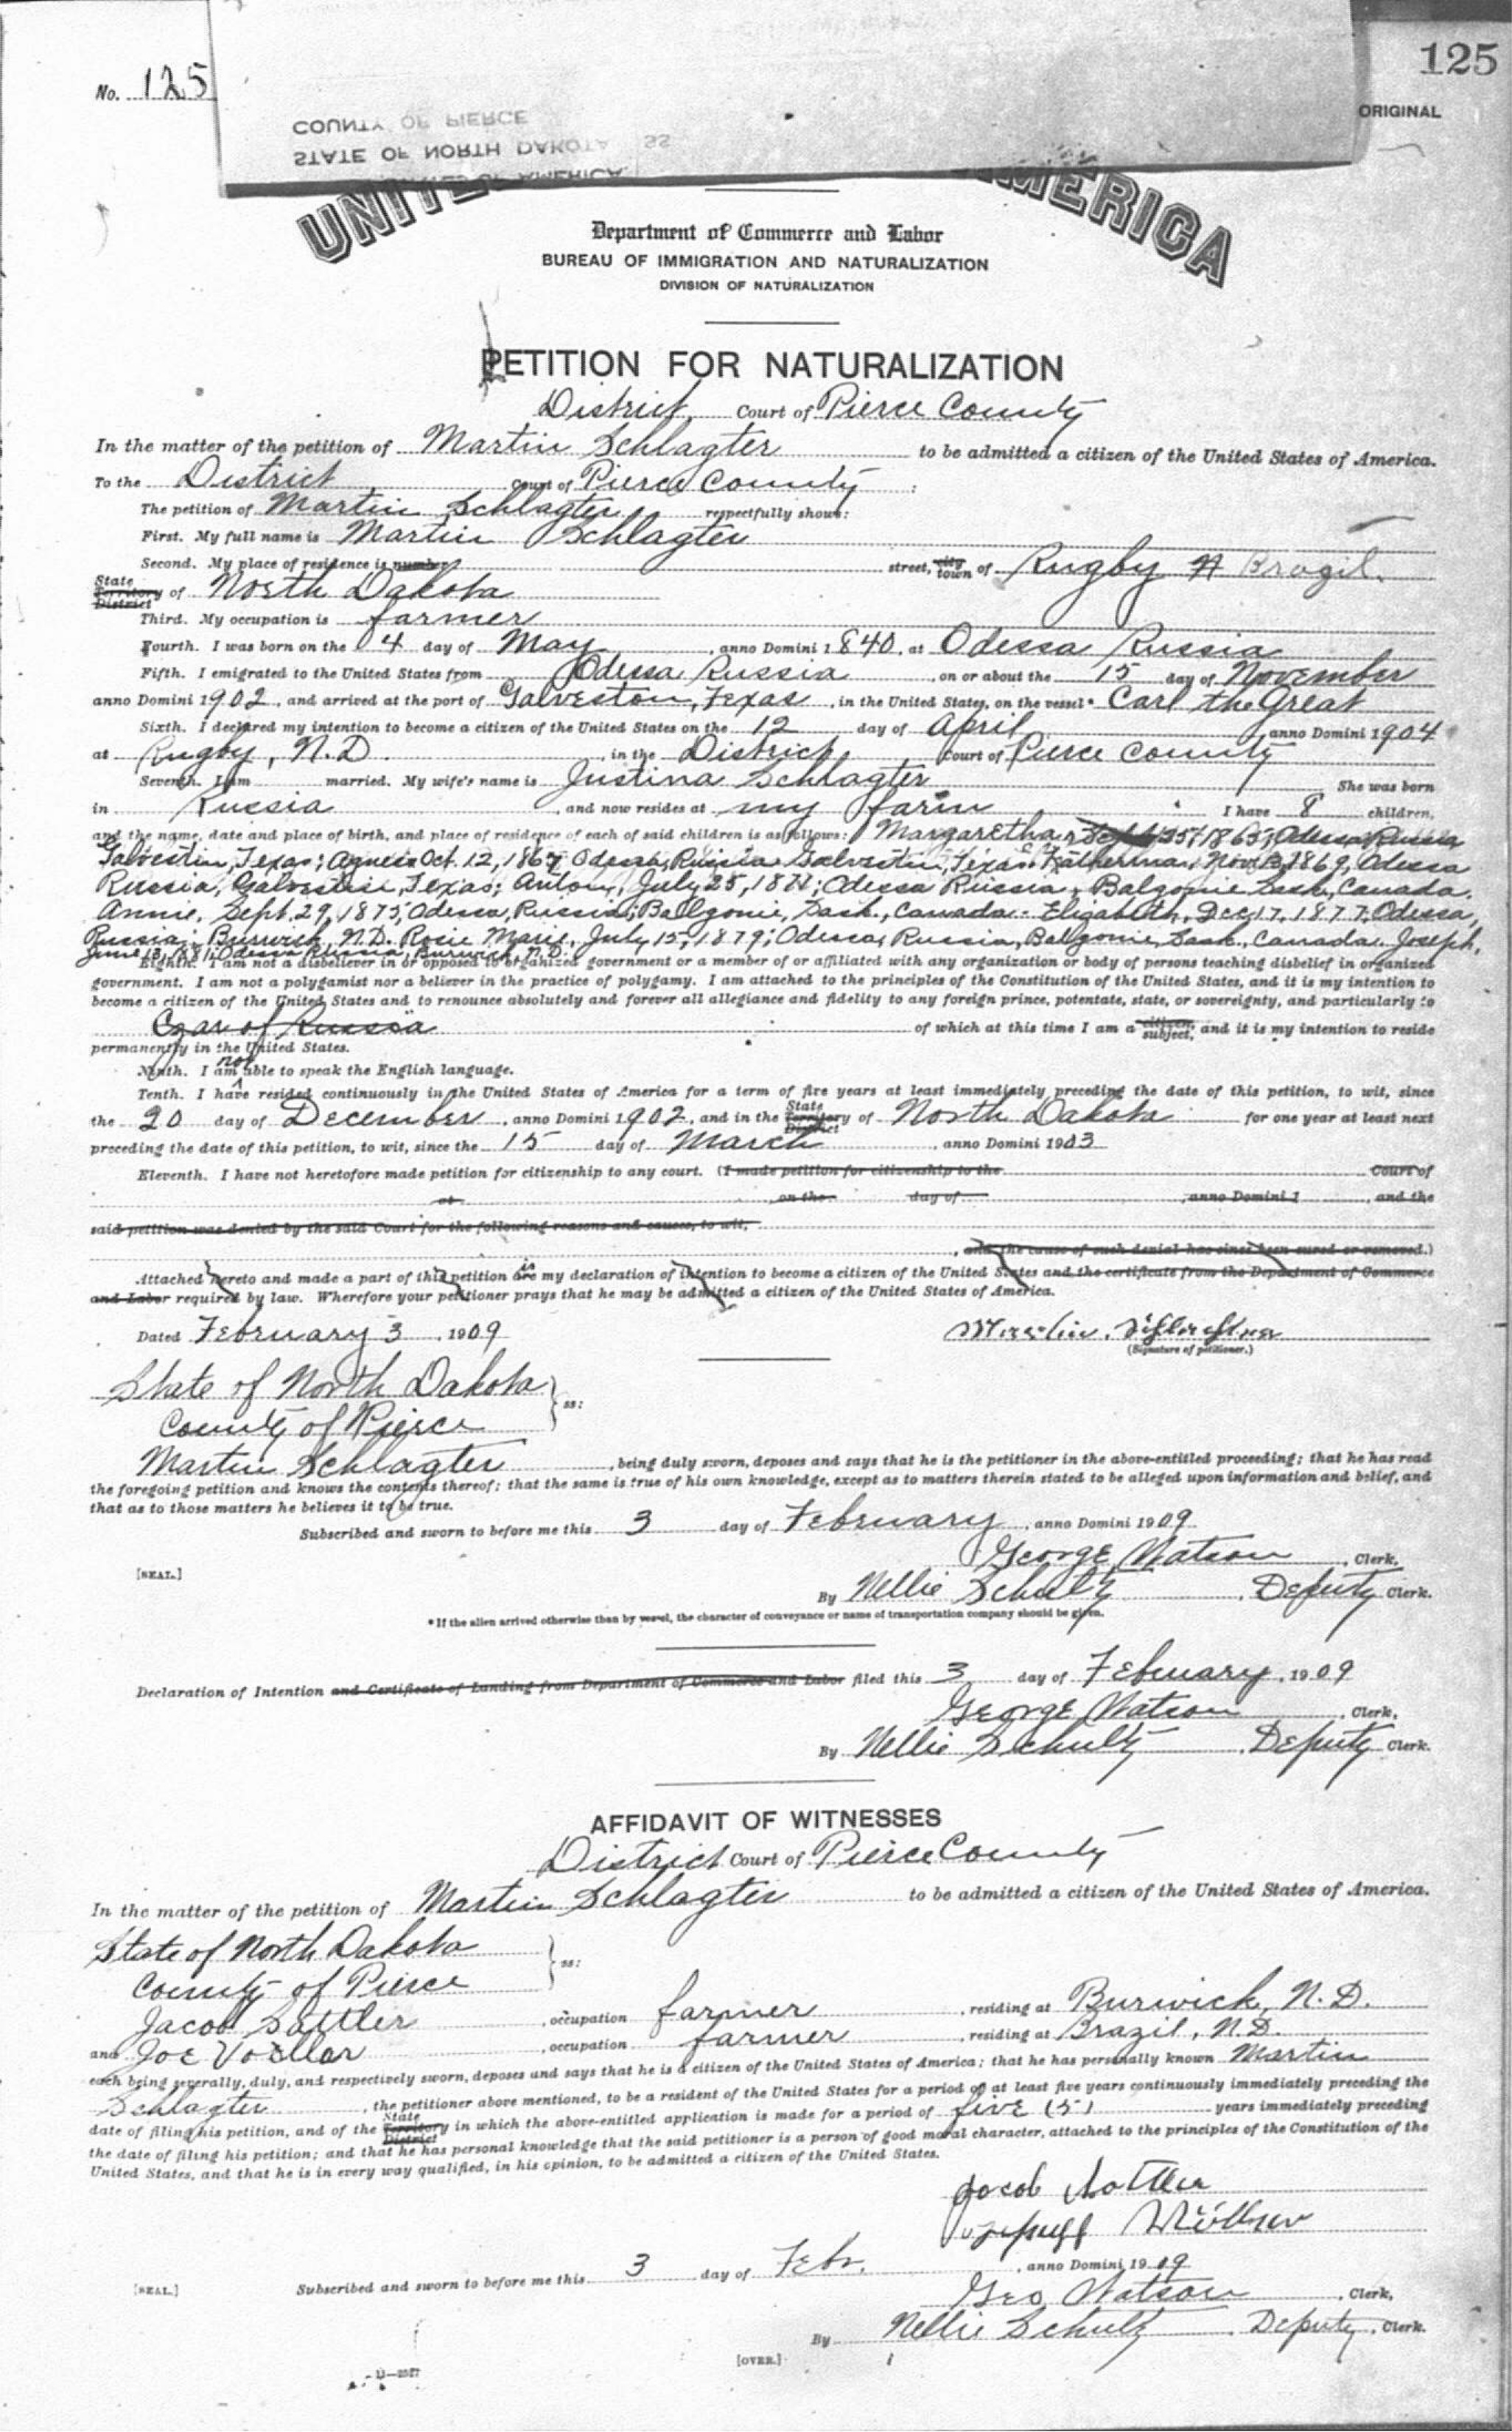 No. 125
125
ORIGINAL
COUNTY OF PIERCE
STATE OF NORTH DAKOTA
OF AMERICA
UNITE AMERICA
Department of Commerce and Labor
BUREAU OF IMMIGRATION AND NATURALIZATION
DIVISION OF NATURALIZATION
PETITION FOR NATURALIZATION
District Court of Pierce County
In the matter of the petition of Martin Schlagter to be admitted a citizen of the United States of America.
To the District Court of Pierce County :
The petition of Martin Schlagter respectfully shows:
First. My full name is Martin Schlagter
Second. My place of residence is number street, city town of Rugby Brazil.
State Territory District of North Dakota
Third. My occupation is farmer
Fourth. I was born on the 4 day of May, anno Domini 1840, at Odessa Russia
Fifth. I emigrated to the United States from Odessa Russia, on or about the 15 day of November
anno Domini 1902, and arrived at the port of Galveston, Texas, in the United States, on the vessel* Carl the Great
Sixth. I declared my intention to become a citizen of the United States on the 12 day of April anno Domini 1904
at Rugby, N.D., in the District Court of Pierce County
Seventh. I am married. My wife's name is Justina Schlagter She was born
in Russia and now resides at my farm I have 8 children,
and the name, date and place of birth, and place of residence of each of said children is as follows: Margaretha, 25, 1865, Odessa Russia
Galvestin, Texas; Agnes Oct. 12, 1867 Odessa, Russia Galvestin, Texas. Katherina, Nov. 1869, Odessa
Russia, Galvestin, Texas; Anton, July 25, 1871; Odessa Russia, Balgonie Sask, Canada.
Annie, Sept. 29, 1875, Odessa, Russia; Ballgonie, Sask., Canada. Elizabeth, Dec. 17, 1877, Odessa,
Russia; Burwick, N.D. Rosie Marie, July 15, 1879; Odessa, Russia, Balgonie, Sask., Canada. Joseph,
June 1881, Odessa Russia, Burwick N.D.
Eighth. I am not a disbeliever in or opposed to organized government or a member of or affiliated with any organization or body of persons teaching disbelief in organized
government. I am not a polygamist nor a believer in the practice of polygamy. I am attached to the principles of the Constitution of the United States, and it is my intention to
become a citizen of the United States and to renounce absolutely and forever all allegiance and fidelity to any foreign prince, potentate, state, or sovereignty, and particularly to
Czar of Russia of which at this time I am a citizen, subject, and it is my intention to reside
permanently in the United States.
Ninth. I am not able to speak the English language.
Tenth. I have resided continuously in the United States of America for a term of five years at least immediately preceding the date of this petition, to wit, since
the 20 day of December, anno Domini 1902, and in the State Territory District of North Dakota for one year at least next
preceding the date of this petition, to wit, since the 15 day of March, anno Domini 1903
Eleventh. I have not heretofore made petition for citizenship to any court. (I made petition for citizenship to the Court of
at, on the day of, anno Domini 1, and the
said petition was denied by the said Court for the following reasons and causes, to wit,
, and the cause of such denial has since been cured or removed.)
Attached hereto and made a part of this petition are is my declaration of intention to become a citizen of the United States and the certificate from the Department of Commerce
and Labor required by law. Wherefore your petitioner prays that he may be admitted a citizen of the United States of America.
Dated February 3, 1909
Martin Schlachter
(Signature of petitioner.)
State of North Dakota
County of Pierce ss:
Martin Schlagter, being duly sworn, deposes and says that he is the petitioner in the above-entitled proceeding; that he has read
the foregoing petition and knows the contents thereof; that the same is true of his own knowledge, except as to matters therein stated to be alleged upon information and belief, and
that as to those matters he believes it to be true.
Subscribed and sworn to before me this 3 day of February, anno Domini 1909
George Watson, Clerk,
[SEAL.]
By Nellie Schultz, Deputy Clerk.
*If the alien arrived otherwise than by vessel, the character of conveyance or name of transportation company should be given.
Declaration of Intention and Certificate of Landing from Department of Commerce and Labor filed this 3 day of February, 1909
George Watson, Clerk,
By Nellie Schultz, Deputy Clerk.
AFFIDAVIT OF WITNESSES
District Court of Pierce County
In the matter of the petition of Martin Schlagter to be admitted a citizen of the United States of America.
State of North Dakota
County of Pierce ss:
Jacob Sattler, occupation farmer, residing at Burwick, N.D.
and Joe Voeller, occupation farmer, residing at Brazil, N.D.
each being severally, duly, and respectively sworn, deposes and says that he is a citizen of the United States of America; that he has personally known Martin
Schlagter, the petitioner above mentioned, to be a resident of the United States for a period of at least five years continuously immediately preceding the
date of filing his petition, and of the State Territory District in which the above-entitled application is made for a period of five (5) years immediately preceding
the date of filing his petition; and that he has personal knowledge that the said petitioner is a person of good moral character, attached to the principles of the Constitution of the
United States, and that he is in every way qualified, in his opinion, to be admitted a citizen of the United States.
Jacob Sattler
Subscribed and sworn to before me this 3 day of Feb., anno Domini 1909
[SEAL.]
Geo Watson, Clerk,
By Nellie Schultz, Deputy, Clerk.
[OVER.]